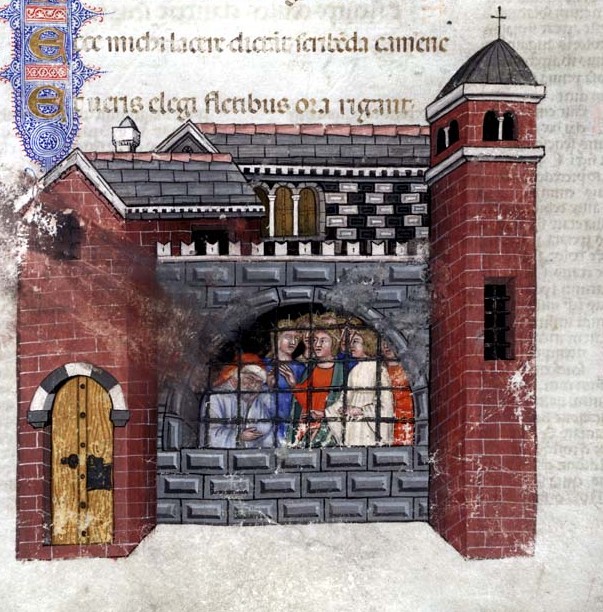 Ecce michi lacere dictāt scribēda camene
Et ueris elegi fletibus ora rigant.